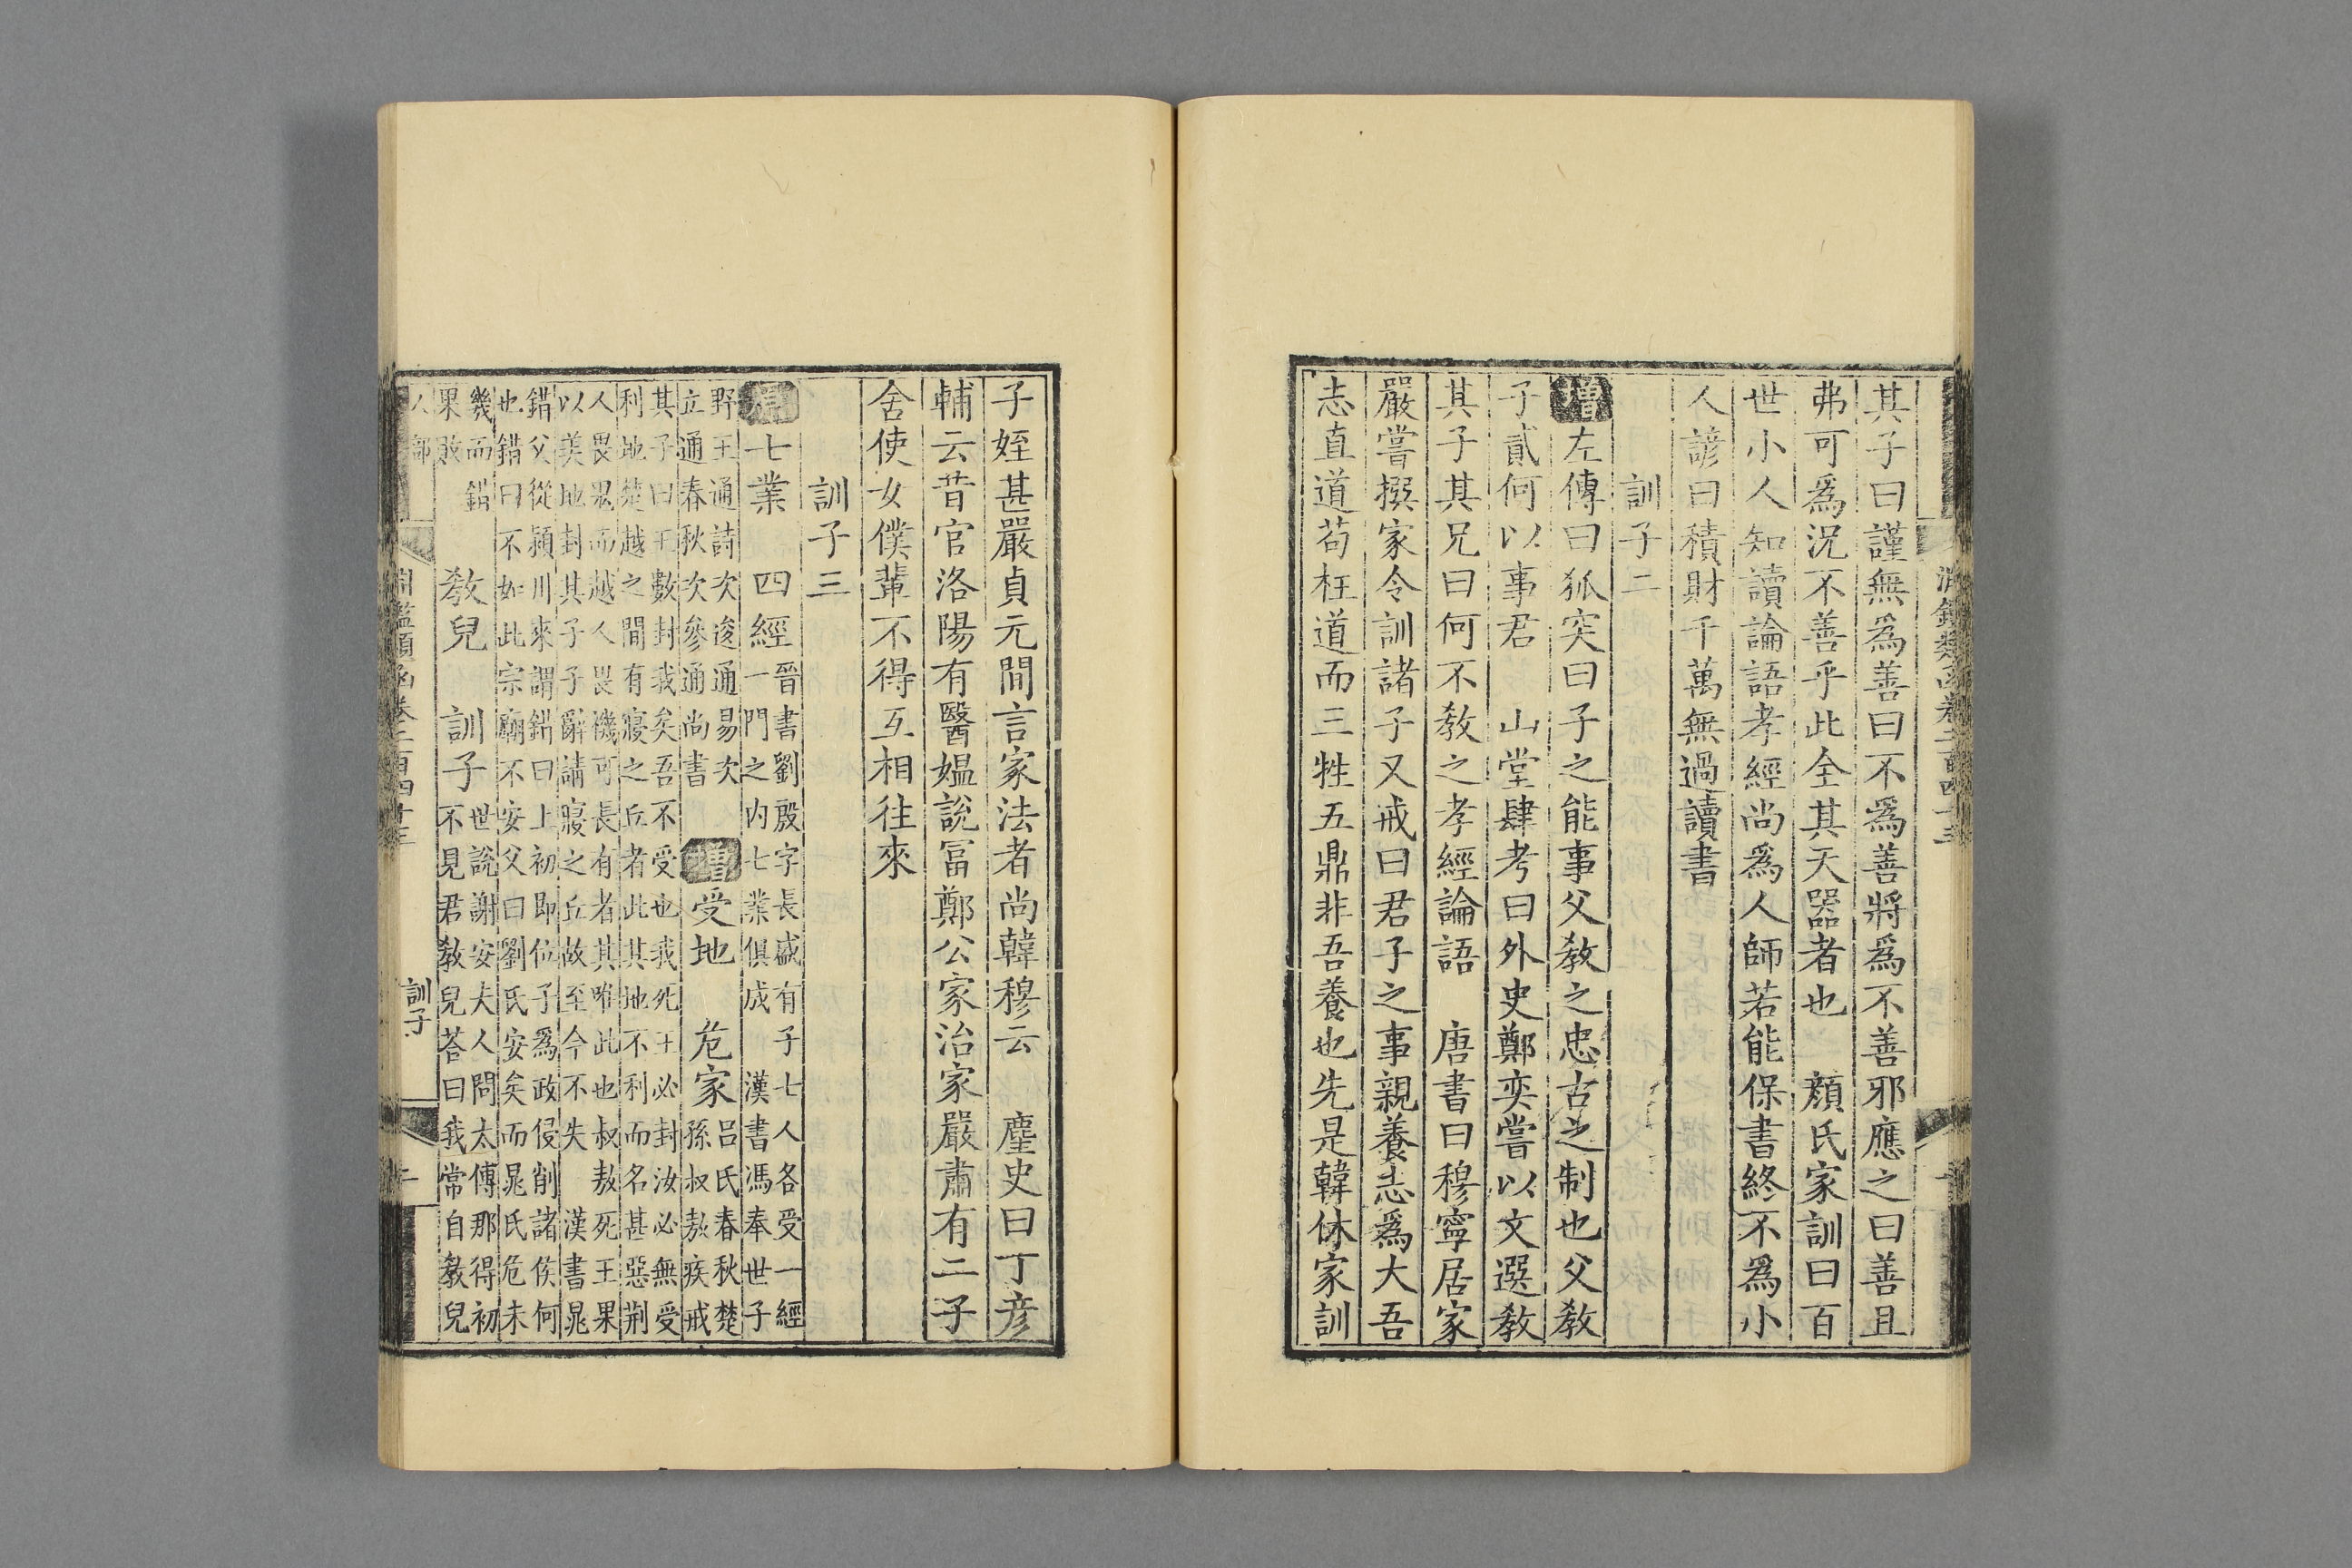 其子曰謹無爲善曰不爲善將爲不善邪應之曰善且
弗可爲況不善乎此全其天器者也　顏氏家訓曰百
世小人知讀論語孝經尚爲人師若能保書終不爲小
人諺曰積財千萬無過讀書
訓子二
增左傳曰狐突曰子之能事父教之忠古之制也父教
子貳何以事君　山堂肆考曰外史鄭奕嘗以文選教
其子其兄曰何不教之孝經論語　唐書曰穆寧居家
嚴嘗撰家令訓諸子又戒曰君子之事親養志爲大吾
志直道苟枉道而三牲五鼎非吾養也先是韓休家訓
子姪甚嚴貞元間言家法者尚韓穆云　塵史曰丁彥
輔云昔官洛陽有醫媼說富鄭公家治家嚴肅有二子
舍使女僕輩不得互相往來
訓子三
七業　四經
晉書劉殷字長盛有子七人各受一經
一門之內七業俱成　漢書馮奉世子
野王通詩次逡通易次
立通春秋次參通尚書
增受地　危家
呂氏春秋楚
孫叔敖疾戒
其子曰王數封我矣吾不受也我死王必封汝必無受
利地楚越之間有寢之丘者此其地不利而名甚惡荆
人畏鬼而越人畏禨可長有者其唯此也叔敖死王果
以美地封其子子辭請寢之丘故至今不失　漢書晁
錯父從潁川來謂錯曰上初即位子爲政侵削諸侯何
也錯曰不如此宗廟不安父曰劉氏安矣而晁氏危未
幾而錯
果敗
教兒　訓子
世說謝安夫人問太傅那得初
不見君教兒荅曰我常自教兒
人部
淵鑑類函卷二百四十三
訓子
二